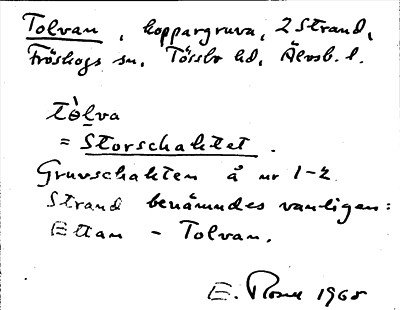 Tolvan, koppargruva, 2 Strand,
Fröskogs sn, Tössbo hd, Älvsb. l.
tòlva
= Storschaktet.
Gruvschakten å nr 1-2
Strand benämndes vanligen:
Ettan - Tolvan.
E. 1968